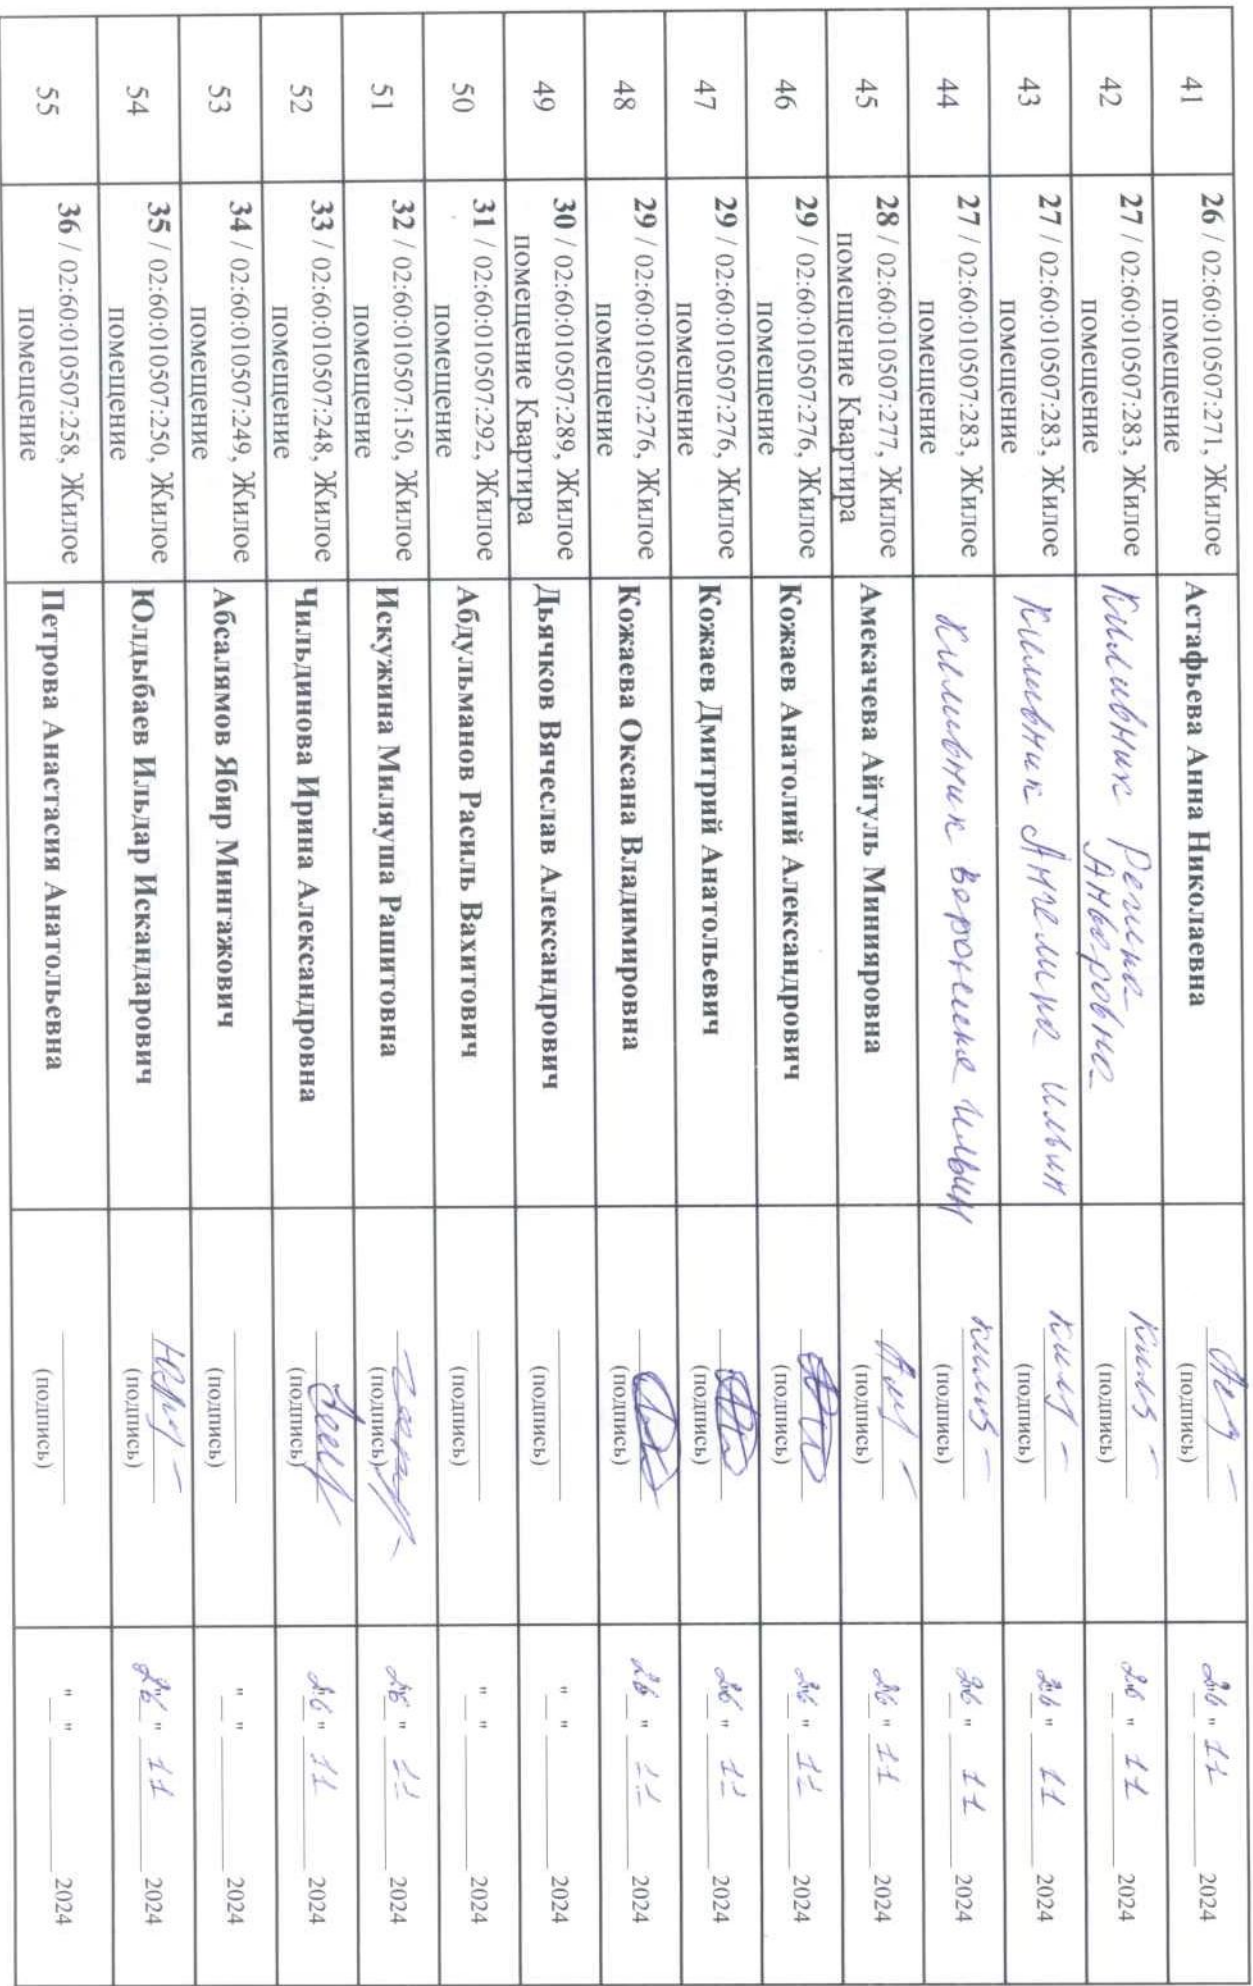 41
26 / 02:60:010507:271, Жилое
помещение
Астафьева Анна Николаевна
(подпись)
26 " 11 2024
42
27 / 02:60:010507:283, Жилое
помещение
Киливник Регина
Анваровна
(подпись)
26 " 11 2024
43
27 / 02:60:010507:283, Жилое
помещение
Киливник Ангелина Ильин
(подпись)
26 " 11 2024
44
27 / 02:60:010507:283, Жилое
помещение
Киливник Ильин
(подпись)
26 " 11 2024
45
28 / 02:60:010507:277, Жилое
помещение Квартира
Амекачева Айгуль Минияровна
(подпись)
26 " 11 2024
46
29 / 02:60:010507:276, Жилое
помещение
Кожаев Анатолий Александрович
(подпись)
26 " 11 2024
47
29 / 02:60:010507:276, Жилое
помещение
Кожаев Дмитрий Анатольевич
(подпись)
26 " 11 2024
48
29 / 02:60:010507:276, Жилое
помещение
Кожаева Оксана Владимировна
(подпись)
26 " 11 2024
49
30 / 02:60:010507:289, Жилое
помещение Квартира
Дьячков Вячеслав Александрович
(подпись)
"__" ________ 2024
50
31 / 02:60:010507:292, Жилое
помещение
Абдульманов Расиль Вахитович
(подпись)
"__" ________ 2024
51
32 / 02:60:010507:150, Жилое
помещение
Искужина Миляуша Рашитовна
(подпись)
26 " 11 2024
52
33 / 02:60:010507:248, Жилое
помещение
Чильдинова Ирина Александровна
(подпись)
26 " 11 2024
53
34 / 02:60:010507:249, Жилое
помещение
Абсалямов Ябир Мингажович
(подпись)
"__" ________ 2024
54
35 / 02:60:010507:250, Жилое
помещение
Юлдыбаев Ильдар Искандарович
(подпись)
26 " 11 2024
55
36 / 02:60:010507:258, Жилое
помещение
Петрова Анастасия Анатольевна
(подпись)
"__" ________ 2024